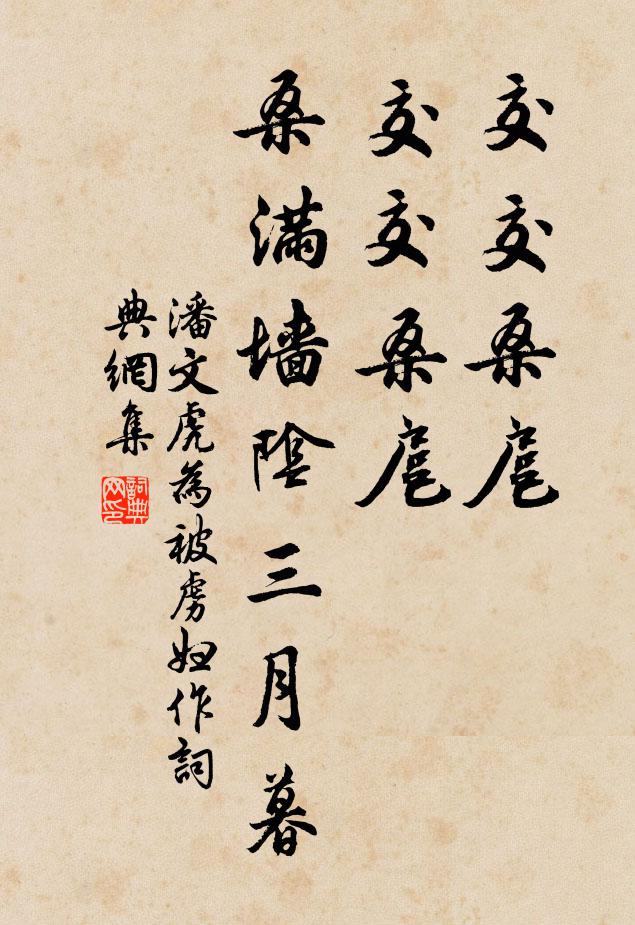 交交桑扈
交交桑扈
桑滿墻陰三月暮
潘文虎為被虜婦作詞
典網集
詞典網印